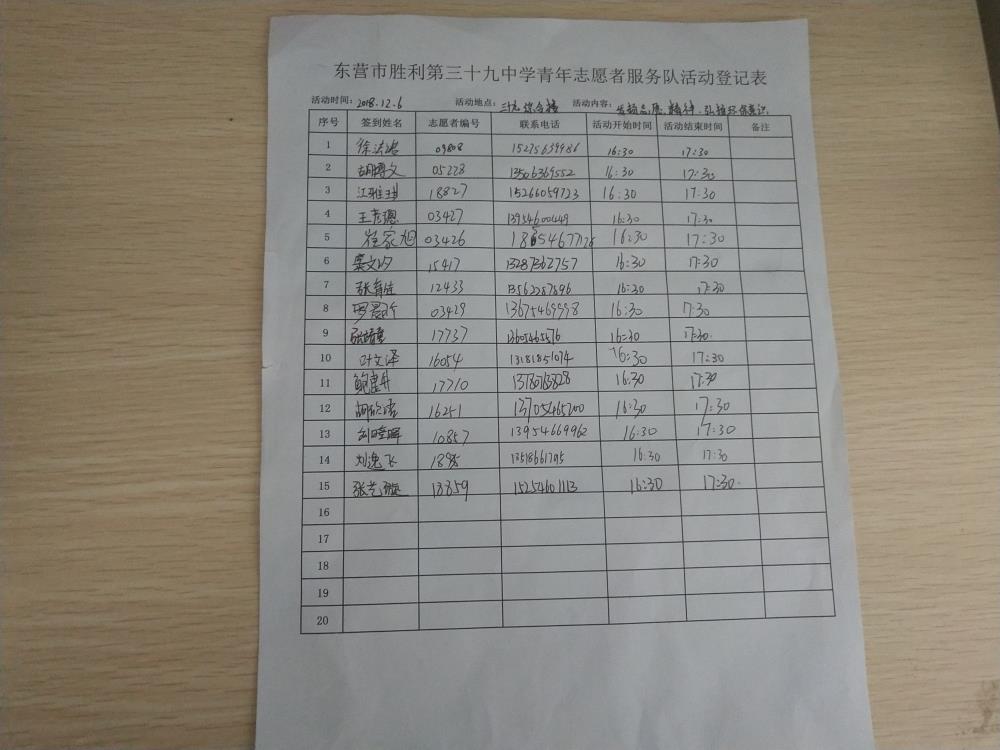 东营市胜利第三十九中学青年志愿者服务队活动登记表
活动时间：2018.12.6 活动地点：三十九综合楼 活动内容：发扬志愿精神，弘扬环保意识.
序号 签到姓名 志愿者编号 联系电话 活动开始时间 活动结束时间 备注
1 09808 15275639986 16:30 17:30
2 胡博文 05228 13506369552 16:30 17:30
3 江雅琪 18827 15266059723 16:30 17:30
4 王彦璁 03427 13954600449 16:30 17:30
5 崔家旭 03426 16:30 17:30
6 文夕 15417 13287362757 16:30 17:30
7 张育佳 12433 13562087896 16:30 17:30
8 罗 03429 13675469998 16:30 17:30
9 张 17737 13605465576 16:30 17:30
10 叶文泽 16054 13181851074 16:30 17:30
11 鲍 17710 16:30 17:30
12 胡欣 16251 13705465200 16:30 17:30
13 刘 10857 13954669962 16:30 17:30
14 刘逸飞 16:30 17:30
15 张艺璇 18859 15254601113 16:30 17:30
16
17
18
19
20